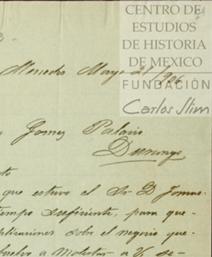 CENTRO DE
ESTUDIOS
DE HISTORIA
DE MEXICO
FUNDACIÓN
Carlos Slim
Mercedes Mayo 21/906
Gomez Palacio
Durango
que estuvo el Sr D Tomas
tiempo suficiente, para que
plicaciones sobre el negocio que
vuelvo a molestar a V. de-